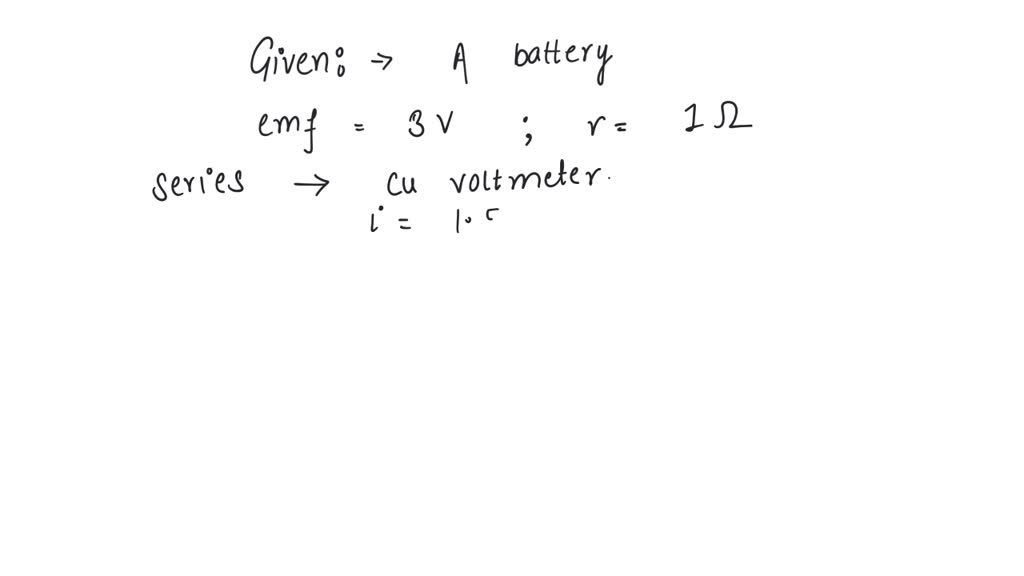 Given: → A battery
emf = 3 V ; r = 1 Ω
series → cu voltmeter.
i = 1.